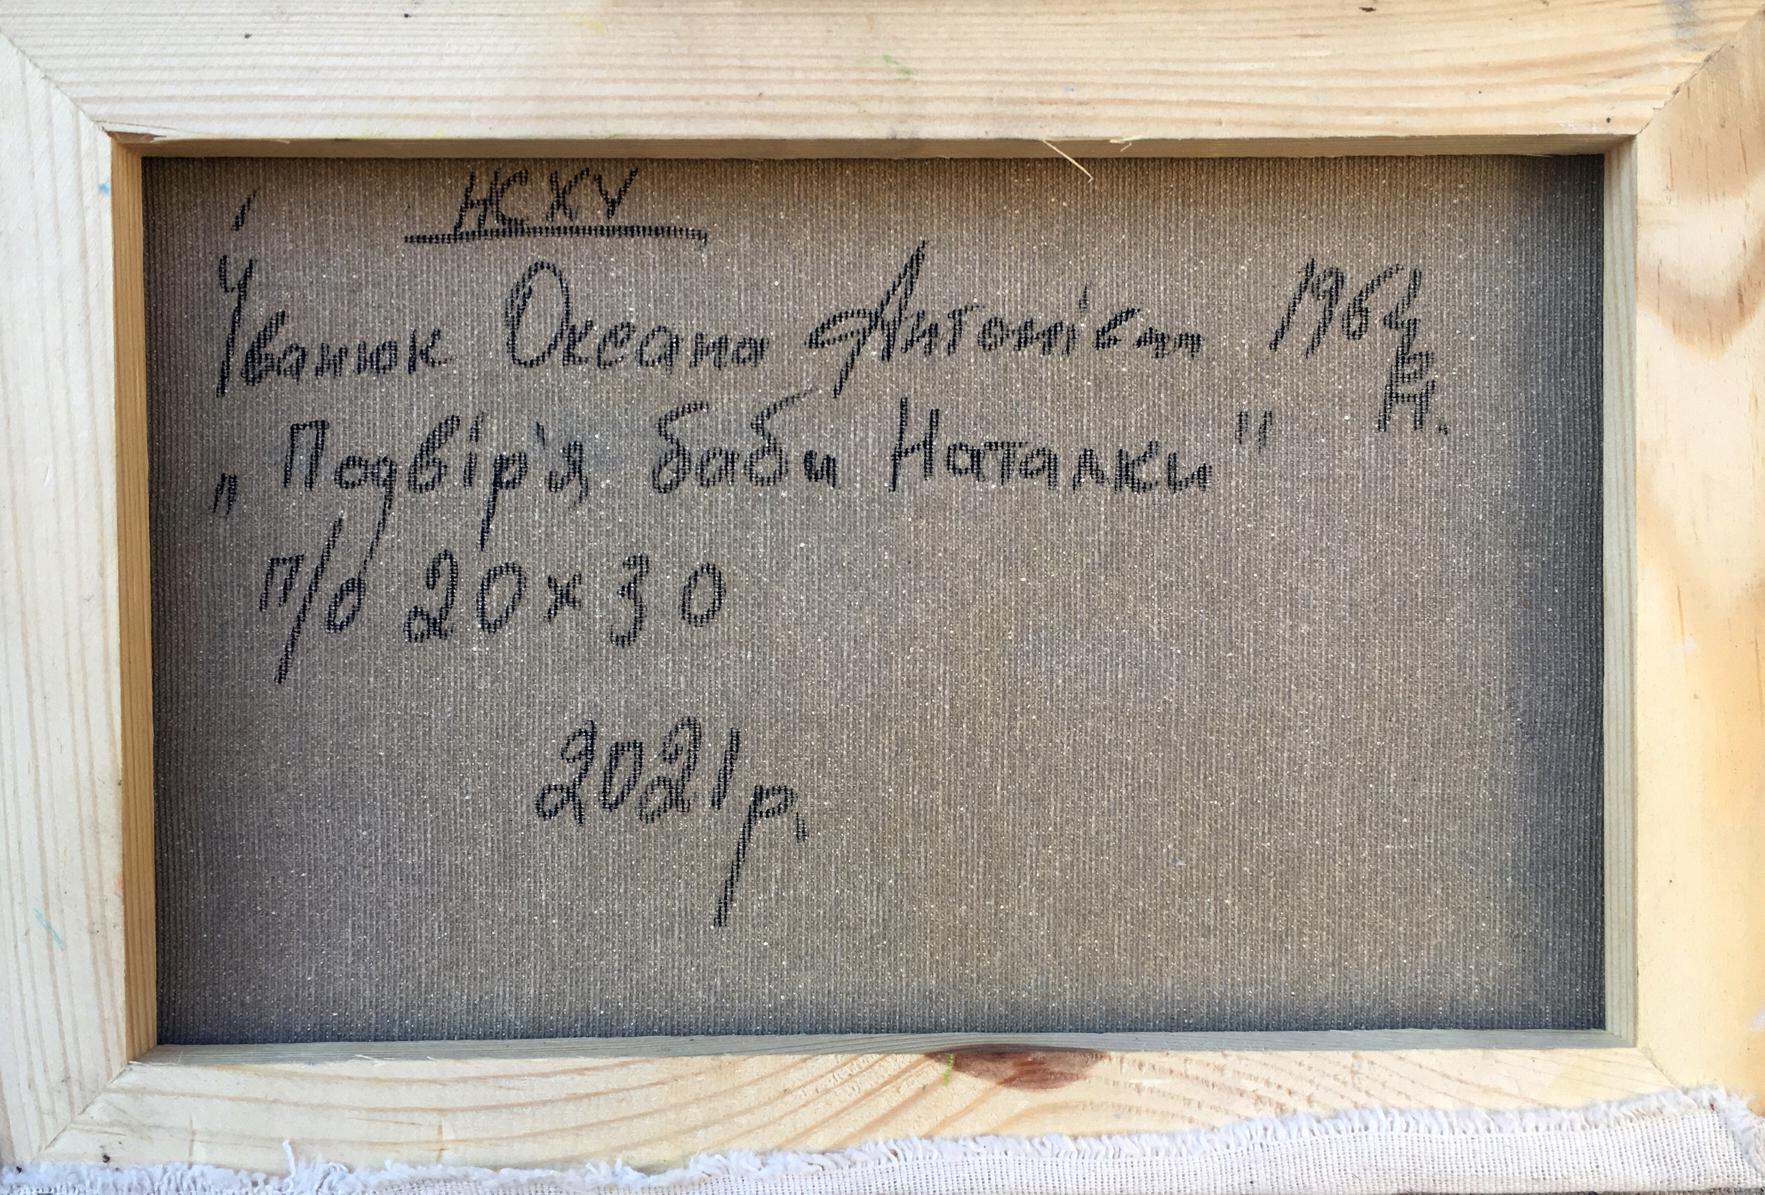 НСХУ
Іванюк Океана Антонівни 1964
р.
н.
„Подвір'я баби Наталки"
п/о 20 х 30
2021 р.